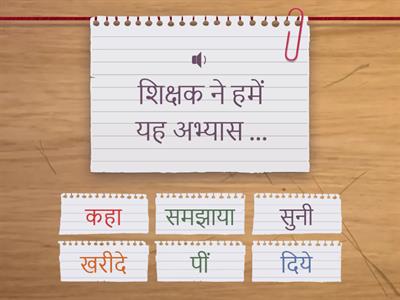 शिक्षक ने हमें
यह अभ्यास ...
कहा
समझाया
सुनी
खरीदे
पीं
दिये